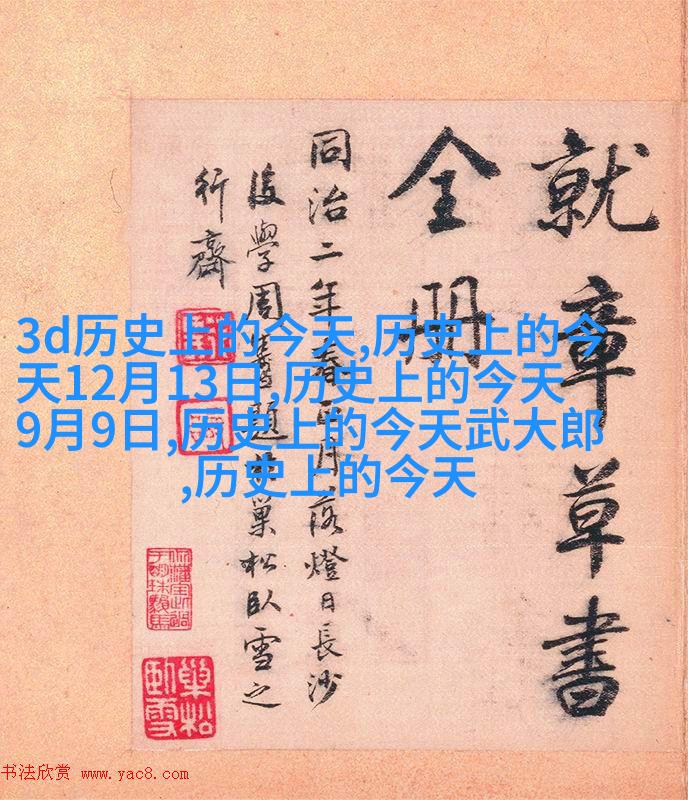 就章草書
全冊
同治二年春正月落燈日長沙
後學周題巢松臥雪之
行齋
3d历史上的今天,历史上的今
天12月13日,历史上的今天
9月9日,历史上的今天武大郎
,历史上的今天
巢松臥雪
书法欣赏 www.yac8.com